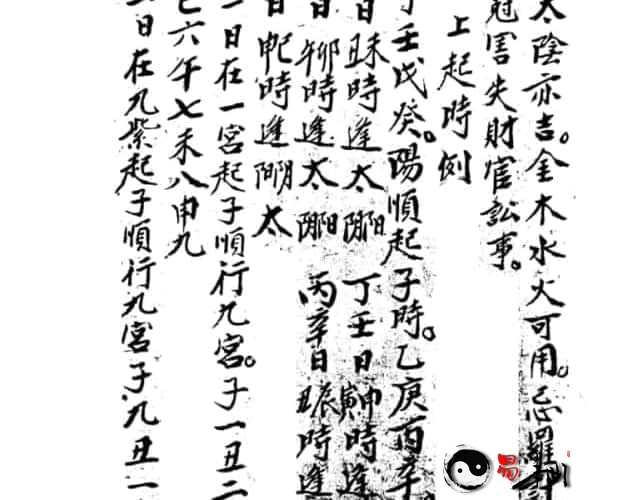 太陰亦吉。金木水火可用。忌羅
冠害失財官訟事。
上起時例
壬戊癸。陽順起子時。乙庚丙辛
日丑未時逢太陽 丁壬日寅申時逢
日卯時逢太陽 丙辛日辰時逢
日時逢太
一日在一宮起子順行九宮。子一丑二
六午七未八申九
日在九紫起子順行九宮子九丑一
易